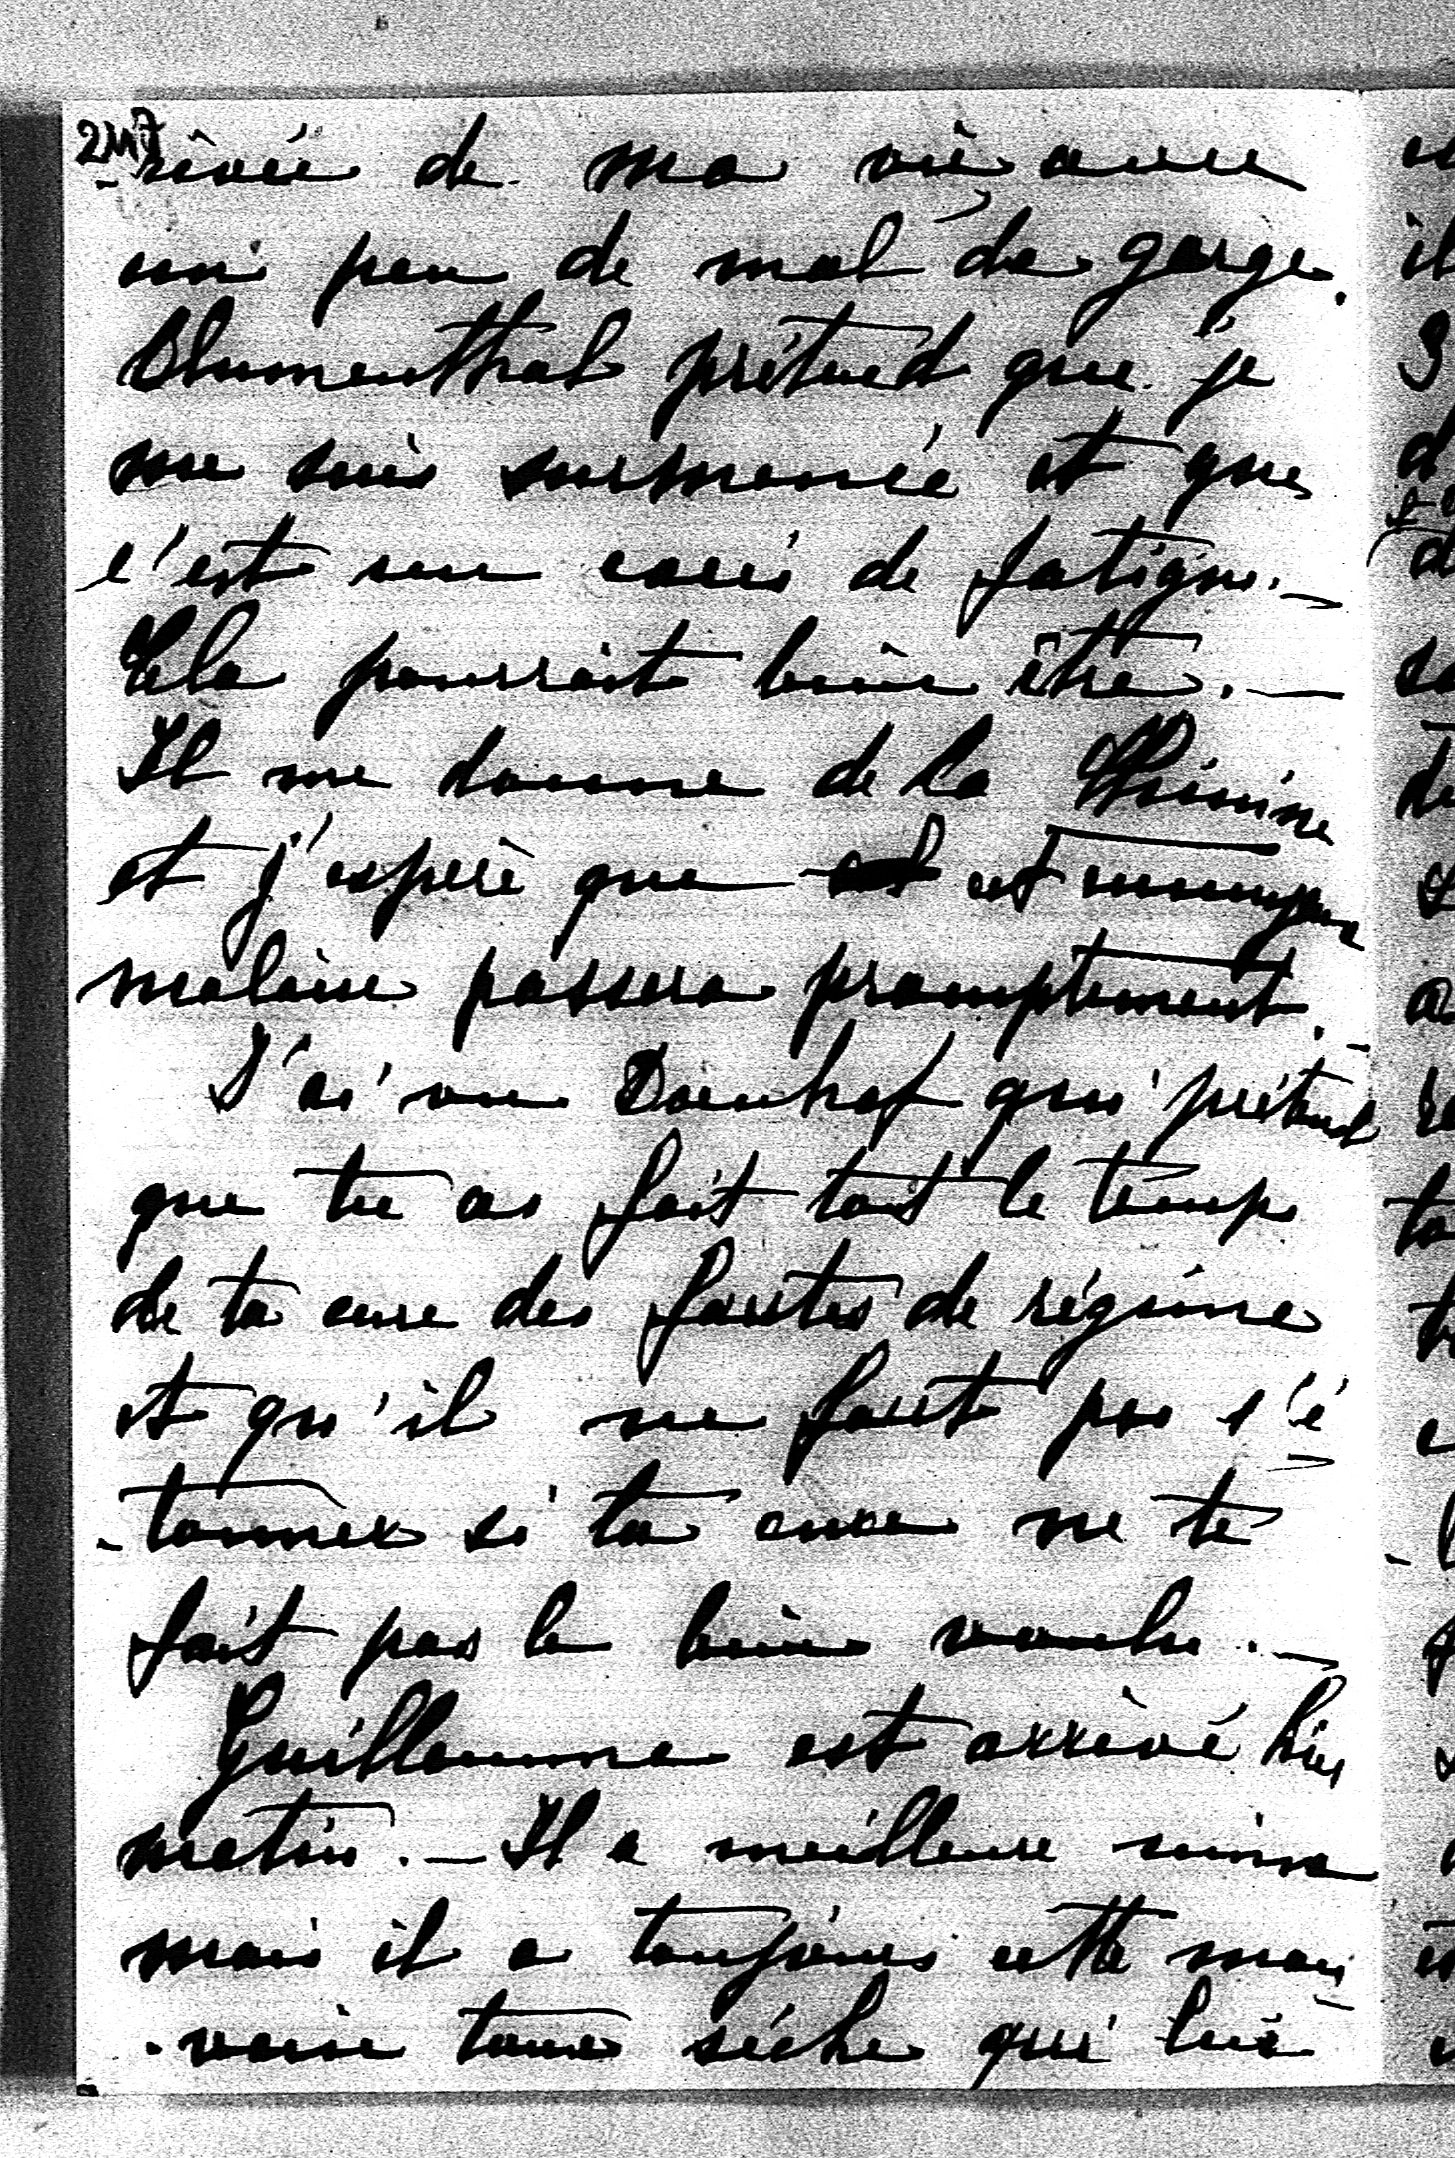 2M7
-rivée de ma vie avec
un peu de mal de gorge.
Blumenthal prétend que je
me suis surmenée et que
c'est un excès de fatigue. —
Cela pourrait bien être. —
Il me donne de la Chinine
et j'espère que cet ennuyeux
malaise passera promptement. -
J'ai vu Doenhof qui prétend
que tu as fait tout le temps
de ta cure des fautes de régime
et qu'il ne faut pas s'é-
-tonner si ta cure ne te
fait pas le bien voulu. —
Guillaume est arrivé hier
matin. — Il a meilleure mine
mais il a toujours cette mau-
-vaise toux sèche qui lui